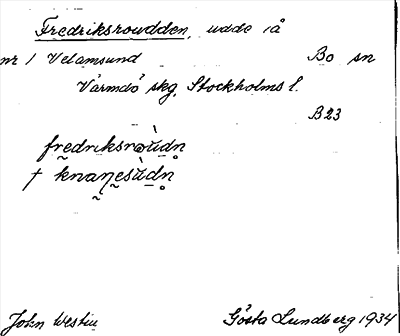 Fredriksroudden, udde i å
nr 1 Velamsund Bo sn
Värmdö skg, Stockholms l.
B23
fredriksroùdn̥
† knaŋesùdn̥
John Westin Gösta Lundberg 1934